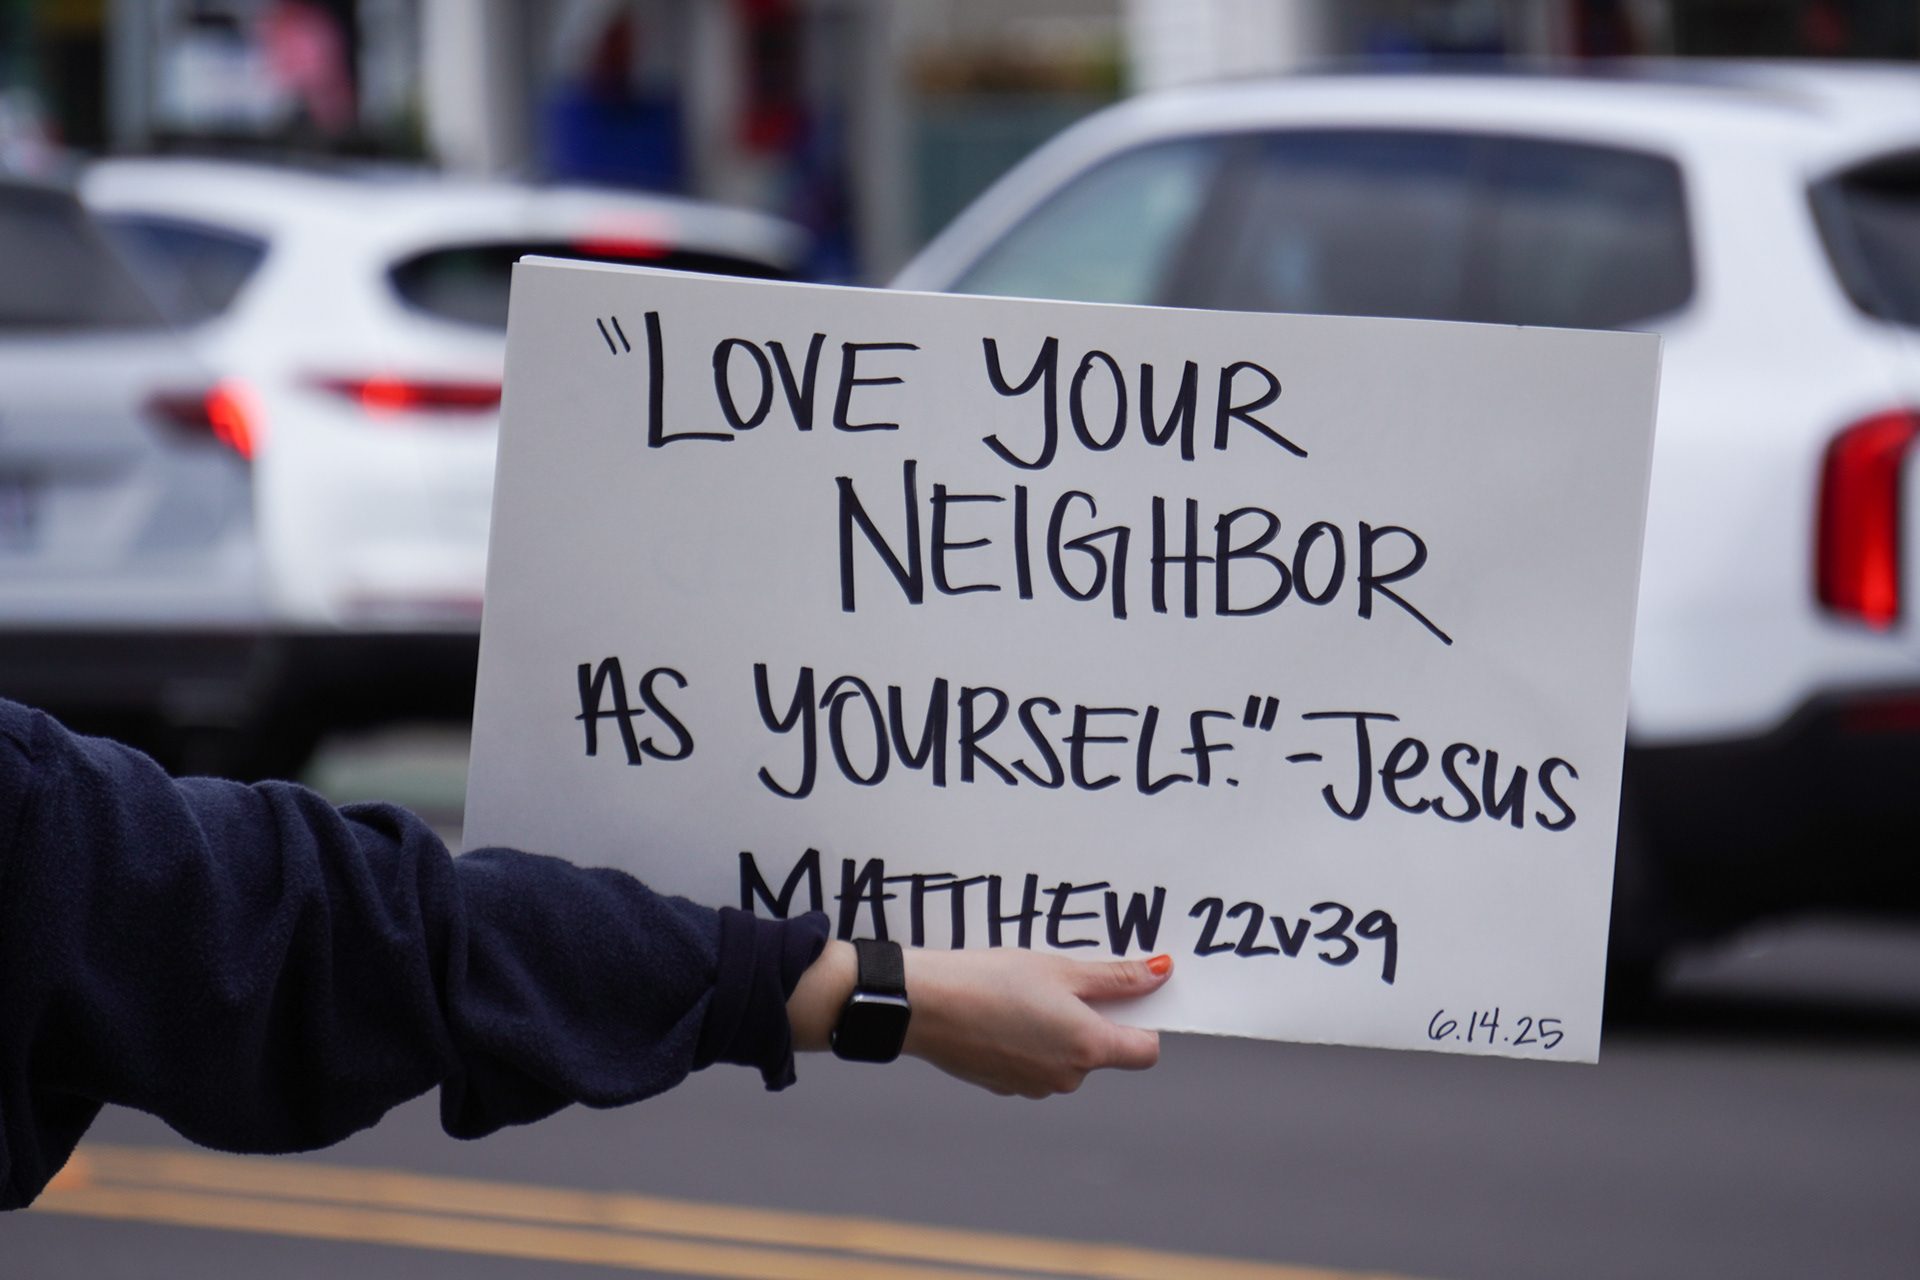 "LOVE YOUR
NEIGHBOR
AS YOURSELF." -Jesus
MATTHEW 22v39
6.14.25